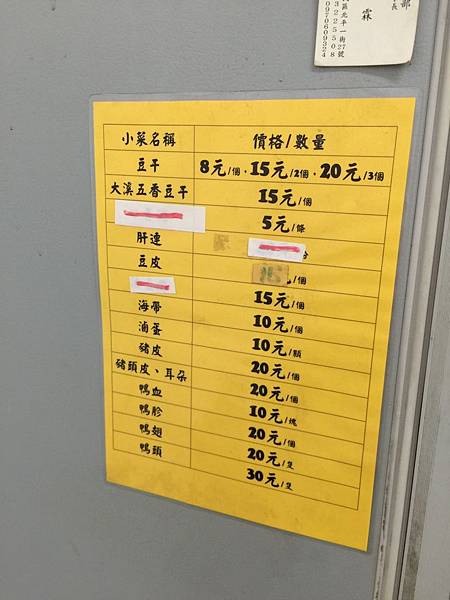 部
長
霖
區北平一街27號
3225508
0970609324
小菜名稱 價格/數量
豆干 8元/個，15元/2個，20元/3個
大溪五香豆干 15元/個
5元/條
肝連
豆皮 /個
15元/個
海帶 10元/個
滷蛋 10元/顆
豬皮 20元/個
豬頭皮、耳朵 20元/個
鴨血 10元/塊
鴨胗 20元/個
鴨翅 20元/隻
鴨頭 30元/隻